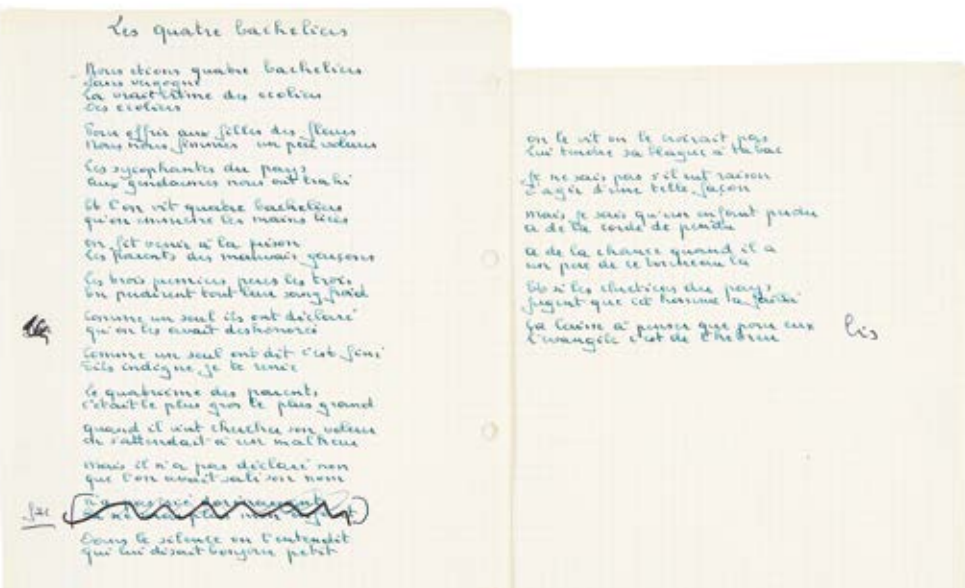 Les quatre bacheliers
Nous étions quatre bacheliers
Sans vergogne
La vraie crème des écoliers
Des écoliers
Pour offrir aux filles des fleurs
Nous nous fimmes un peu voleurs
Les sycophantes du pays
aux gendarmes nous ont trahi
Et l'on vit quatre bacheliers
qu'on emmène les mains liées
on fit venir à la prison
les parents des mauvais garçons
les trois premiers pères les trois
en perdirent tout leur sang froid
Comme un seul ils ont déclaré
qu'on les avait deshonoré
Comme un seul ont dit c'est fini
Fils indigne je te renie
le quatrième des parents
c'était le plus gros le plus grand
quand il vint chercher son voleur
on s'attendait à un malheur
mais il n'a pas déclaré non
que l'on avait sali son nom
Dans le silence on l'entendit
qui lui disait bonjour petit
on le vit on le croirait pas
lui tendre sa blague à tabac
Je ne sais pas s'il eut raison
d'agir d'une telle façon
mais je sais qu'un enfant perdu
a de la corde de pendu
a de la chance quand il a
un père de ce tonneau là
Et si les chrétiens du pays
jugent que cet homme a failli
ça laisse à penser que pour eux
l'évangile c'est de l'hébreu
bis